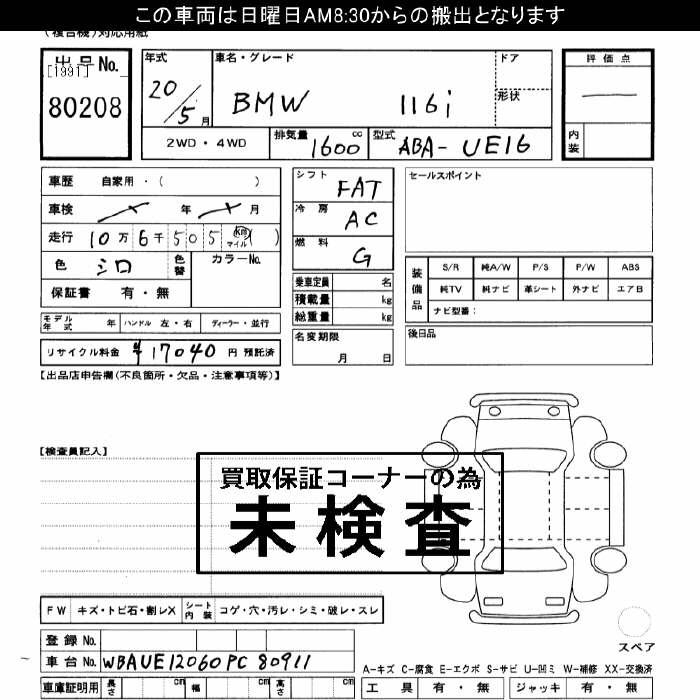 この車両は日曜日AM8:30からの搬出となります
(複合機)対応用紙
出品No.
[1991]
80208
年式
20/5月
車名・グレード
BMW 116i
ドア
形状
2WD・4WD
排気量
1600cc
型式
ABA-UE16
評価点
―
内装
車歴 自家用・( )
車検 年 月
走行 10万6千505 Km マイル( )
色 シロ 色替
カラーNo.
保証書 有・無
モデル年式 年 ハンドル 左・右 ディーラー・並行
リサイクル料金 ¥17040 円 預託済
シフト FAT
冷房 AC
燃料 G
乗車定員 名
積載量 kg
総重量 kg
名変期限
月 日
セールスポイント
装備品
S/R 純A/W P/S P/W ABS
純TV 純ナビ 革シート 外ナビ エアB
ナビ型番:
後日品
【出品店申告欄(不良箇所・欠品・注意事項等)】
【検査員記入】
買取保証コーナーの為
未検査
FW キズ・トビ石・割レX シート内装 コゲ・穴・汚レ・シミ・破レ・スレ
登録No.
車台No. WBAUE12060PC80911
車庫証明用 長さ cm 幅 cm 高さ cm
スペア
A-キズ C-腐食 E-エクボ S-サビ U-凹ミ W-補修 XX-交換済
工具 有・無 ジャッキ 有・無